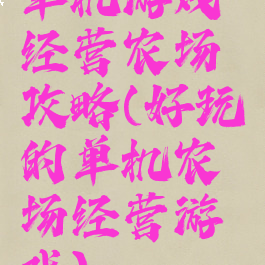 单机游戏
经营农场
攻略(好玩
的单机农
场经营游
戏)